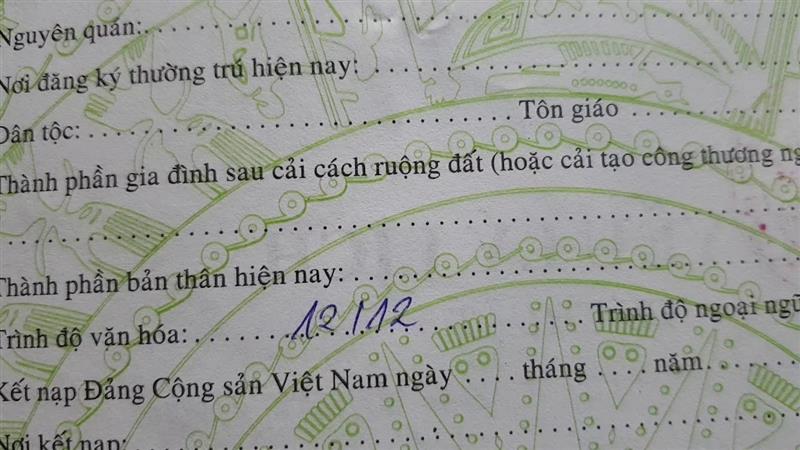 Nguyên quán:
Nơi đăng ký thường trú hiện nay:
Dân tộc: Tôn giáo
Thành phần gia đình sau cải cách ruộng đất (hoặc cải tạo công thương
Thành phần bản thân hiện nay:
Trình độ văn hóa: 12/12 Trình độ ngoại ngữ
Kết nạp Đảng Cộng sản Việt Nam ngày .... tháng .... năm
Nơi kết nạp: